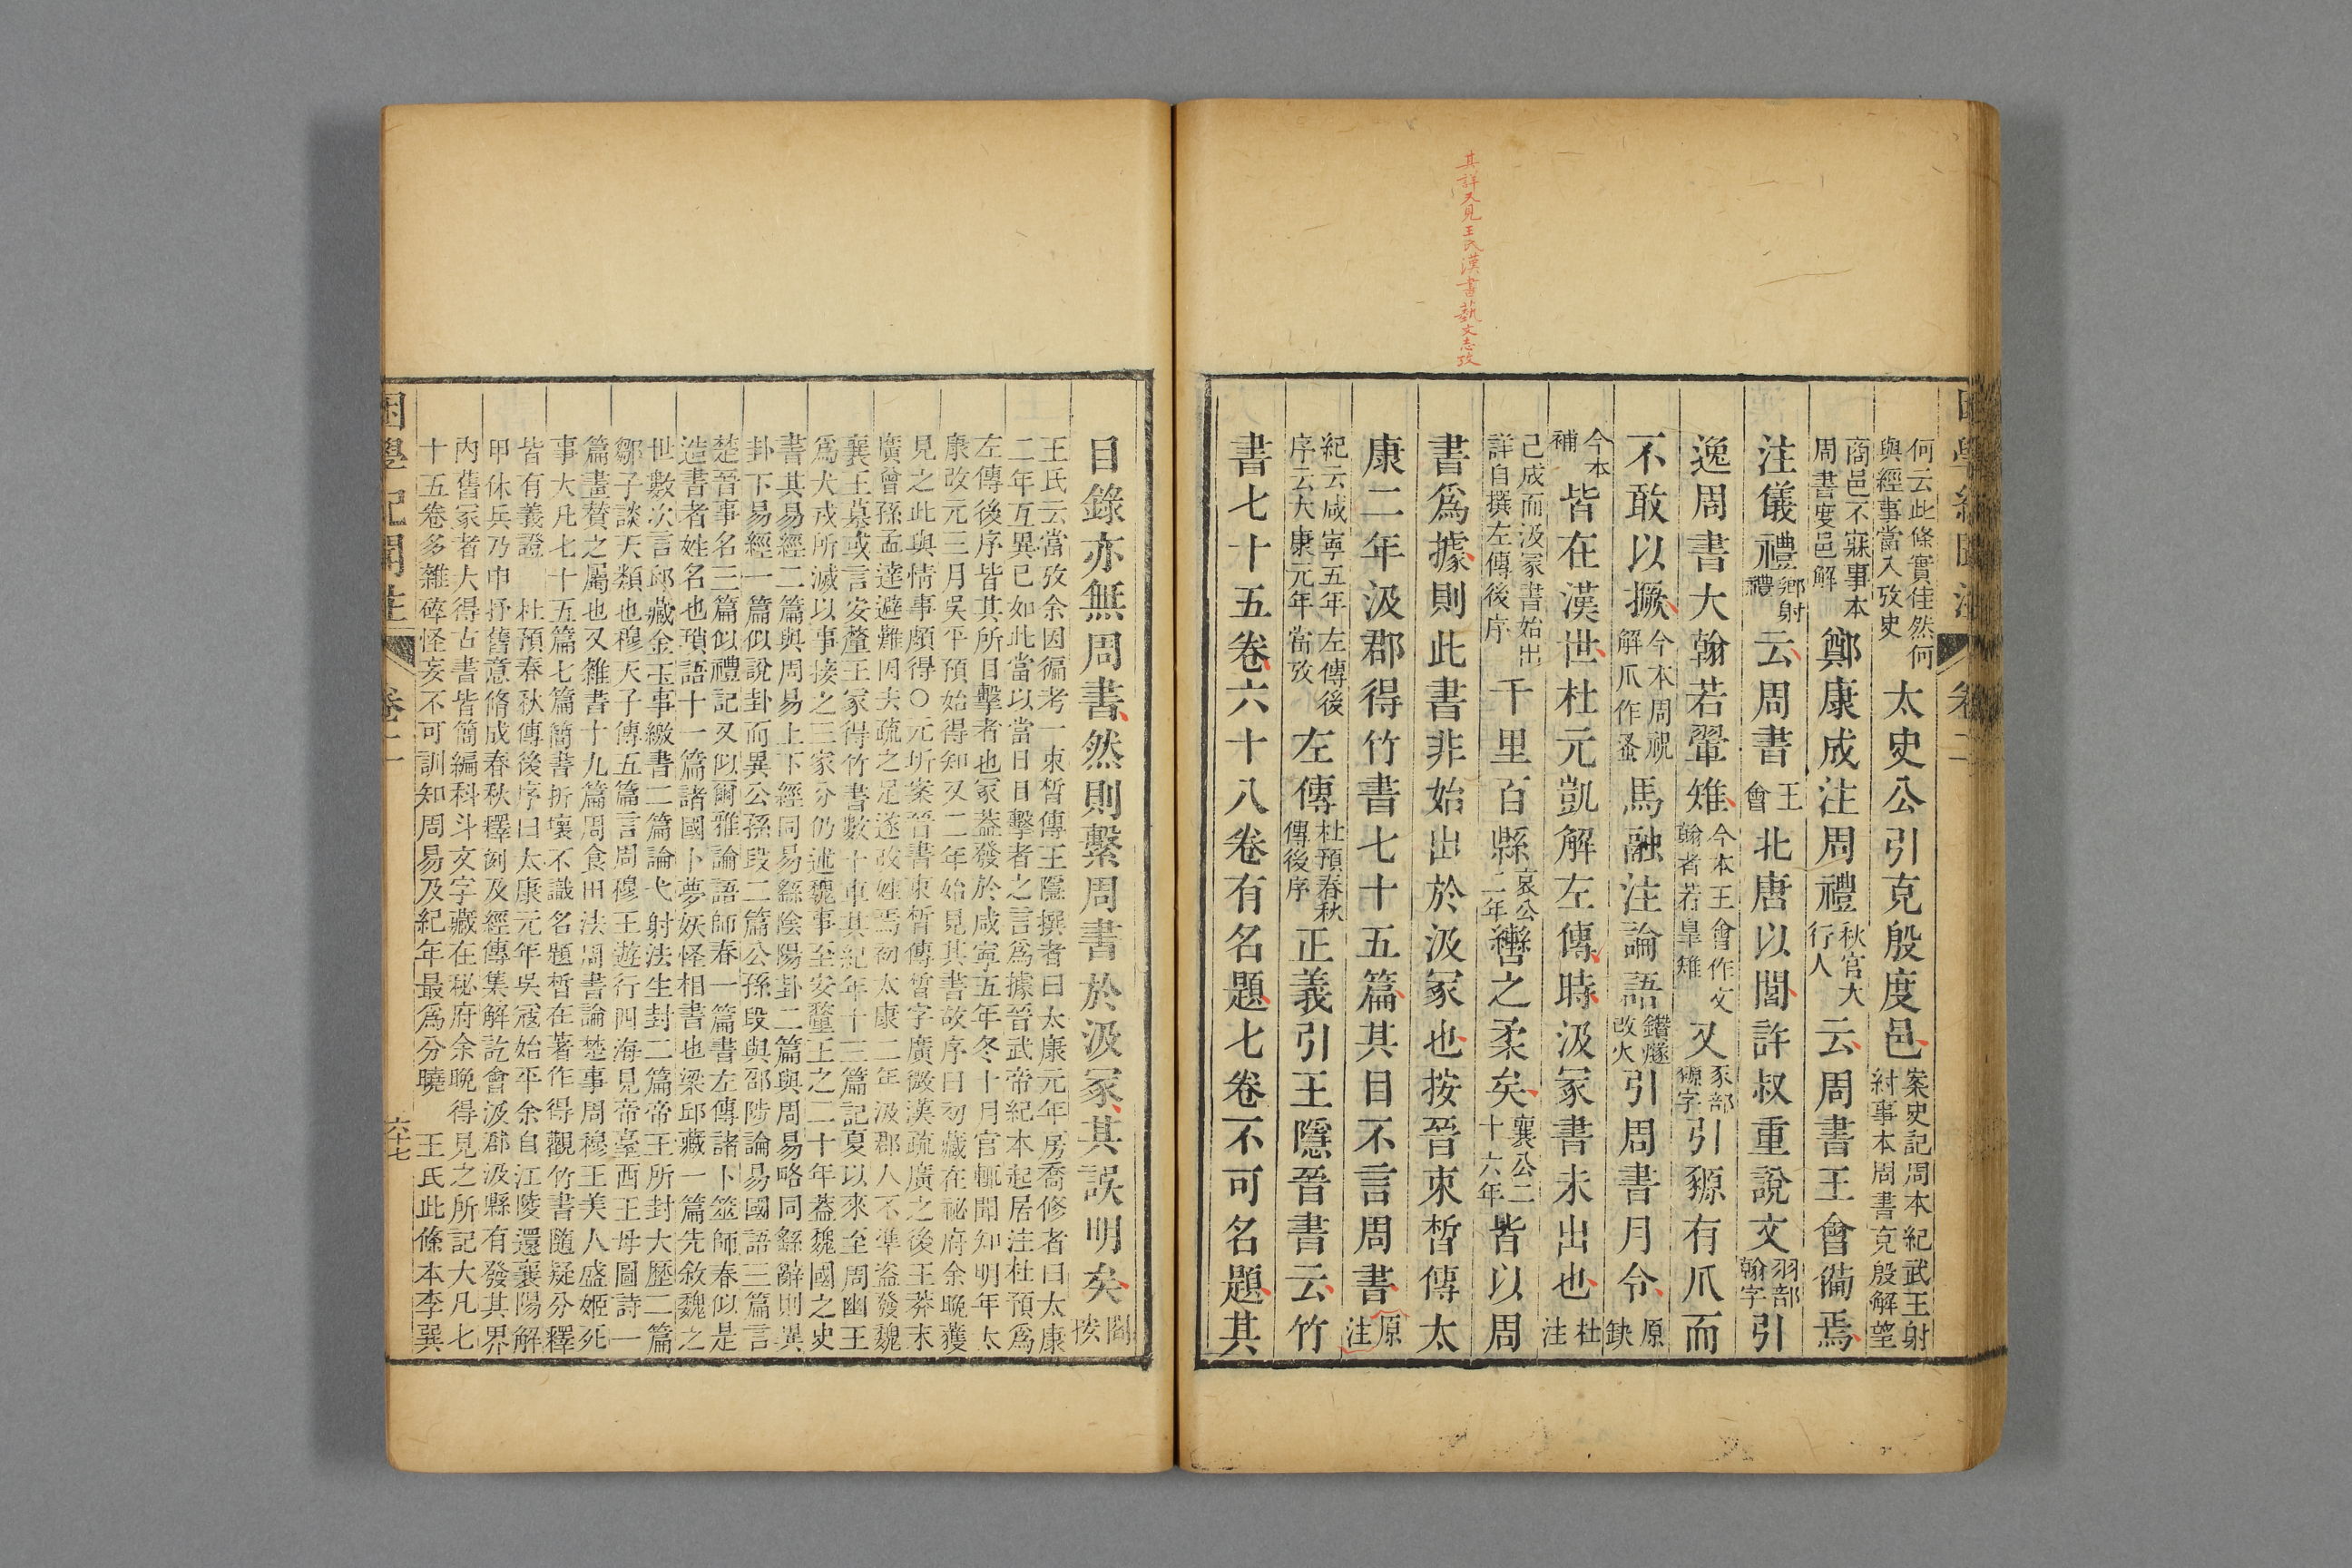 其詳又見王氏漢書藝文志攷
何云此條實佳然何
與經事當入攷史
太史公引克殷度邑
案史記周本紀武王射
紂事本周書克殷解望
商邑不寐事本
周書度邑解
鄭康成注周禮
秋官大
行人
云周書王會備焉
注儀禮
鄉射
禮
云周書
王
會
北唐以閭許叔重說文
羽部
翰字
引
逸周書大翰若翬雉
今本王會作文
翰者若臯雉
又
豕部
豲字
引豲有爪而
不敢以撅
今本周祝
解爪作蚤
馬融注論語
鑽燧
改火
引周書月令
原
缺
今本
補
皆在漢世杜元凱解左傳時汲冢書未出也
杜
注
已成而汲冢書始出
詳自撰左傳後序
千里百縣
哀公
二年
轡之柔矣
襄公二
十六年
皆以周
書爲據則此書非始出於汲冢也按晉束晳傳太
康二年汲郡得竹書七十五篇其目不言周書
原
注
紀云咸寧五年左傳後
序云太康元年當攷
左傳
杜預春秋
傳後序
正義引王隱晉書云竹
書七十五卷六十八卷有名題七卷不可名題其
目錄亦無周書然則繫周書於汲冢其誤明矣
閻
按
王氏云當攷余因徧考一束晳傳王隱撰者曰太康元年房喬修者曰太康
二年互異已如此當以當日目擊者之言爲據晉武帝紀本起居注杜預爲
左傳後序皆其所目擊者也冢葢發於咸寧五年冬十月官輒聞知明年太
康改元三月吳平預始得知又二年始見其書故序曰初藏在祕府余晚獲
見之此與情事頗得○元圻案晉書束晳傳晳字廣微漢疏廣之後王莽末
廣曾孫孟達避難因去疏之足遂改姓焉初太康二年汲郡人不準盜發魏
襄王墓或言安釐王冢得竹書數十車其紀年十三篇記夏以來至周幽王
爲犬戎所滅以事接之三家分仍述魏事至安釐王之二十年葢魏國之史
書其易經二篇與周易上下經同易繇陰陽卦二篇與周易略同繇辭則異
卦下易經一篇似說卦而異公孫段二篇公孫段與邵陟論易國語三篇言
楚晉事名三篇似禮記又似爾雅論語師春一篇書左傳諸卜筮師春似是
造書者姓名也瑣語十一篇諸國卜夢妖怪相書也梁邱藏一篇先敘魏之
世數次言邱藏金玉事繳書二篇論弋射法生封二篇帝王所封大歷二篇
鄒子談天類也穆天子傳五篇言周穆王遊行四海見帝臺西王母圖詩一
篇畫贊之屬也又雜書十九篇周食田法周書論楚事周穆王美人盛姬死
事大凡七十五篇七篇簡書折壞不識名題晳在著作得觀竹書隨疑分釋
皆有義證　杜預春秋傳後序曰太康元年吳寇始平余自江陵還襄陽解
甲休兵乃申抒舊意脩成春秋釋例及經傳集解訖會汲郡汲縣有發其界
內舊冢者大得古書皆簡編科斗文字藏在秘府余晚得見之所記大凡七
十五卷多雜碎怪妄不可訓知周易及紀年最爲分曉　王氏此條本李巽
困學紀聞注
卷二
六十七